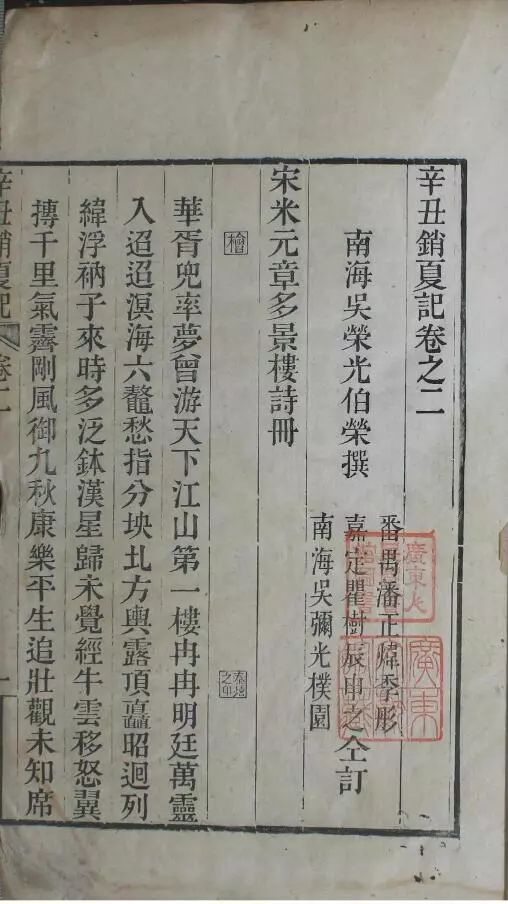 辛丑銷夏記卷之二
南海吳榮光伯榮撰
番禺潘正煒季彤
嘉定瞿樹辰申之仝訂
南海吳彌光樸園
宋米元章多景樓詩冊
檜
秦檜之印
華胥兜率夢曾游天下江山第一樓冉冉明廷萬靈
入迢迢溟海六鼇愁指分坱圠方輿露頂矗昭迴列
緯浮衲子來時多泛鉢漢星歸未覺經牛雲移怒翼
摶千里氣霽剛風御九秋康樂平生追壯觀未知席
辛丑銷夏記 卷二
一
廣東
廣東